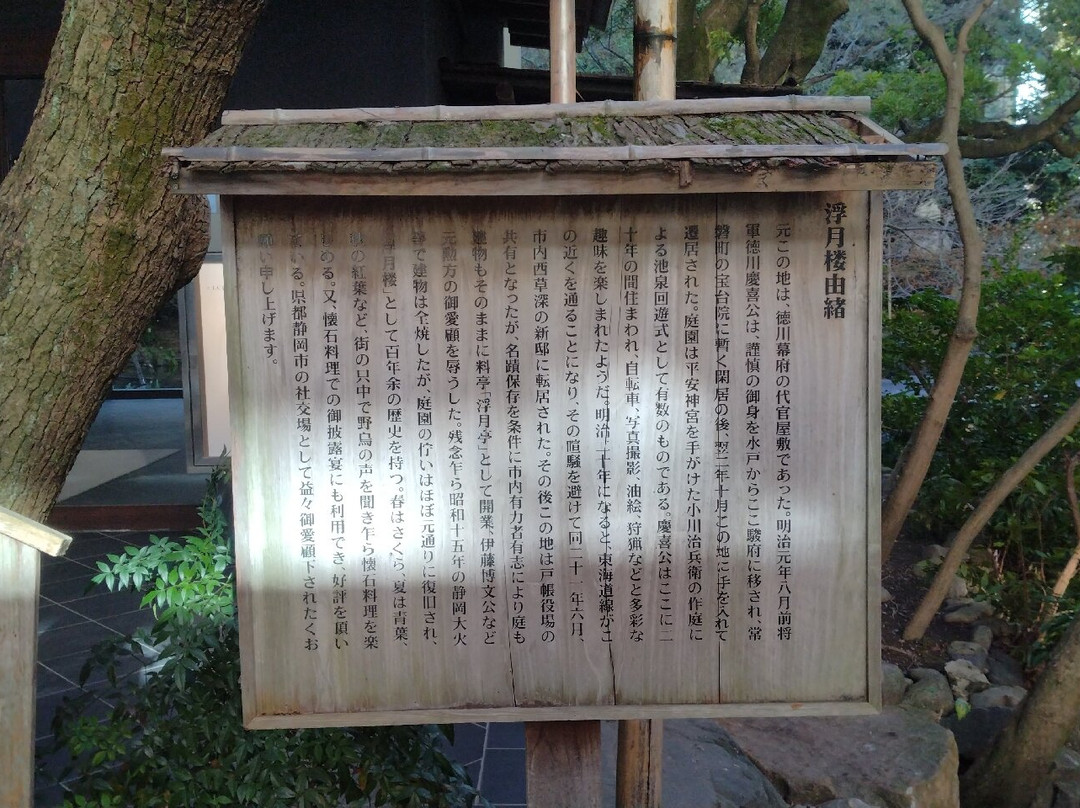 浮月楼由緒
元この地は、徳川幕府の代官屋敷であった。明治元年八月前将
軍徳川慶喜公は、謹慎の御身を水戸からここ駿府に移され、常
磐町の宝台院に暫く閑居の後、翌二年十月この地に手を入れて
遷居された。庭園は平安神宮を手がけた小川治兵衛の作庭に
よる池泉回遊式として有数のものである。慶喜公はここに二
十年の間住まわれ、自転車、写真撮影、油絵、狩猟などと多彩な
趣味を楽しまれたようだ。明治二十年になると、東海道線がこ
の近くを通ることになり、その喧騒を避けて同二十一年六月、
市内西草深の新邸に転居された。その後この地は戸帳役場の
共有となったが、名蹟保存を条件に市内有力者有志により庭も
建物もそのままに料亭「浮月亭」として開業、伊藤博文公など
元勲方の御愛顧を辱うした。残念乍ら昭和十五年の静岡大火
で建物は全焼したが、庭園の佇いはほぼ元通りに復旧され、
月楼」として百年余の歴史を持つ。春はさくら、夏は青葉、
の紅葉など、街の只中で野鳥の声を聞き乍ら懐石料理を楽
める。又、懐石料理での御披露宴にも利用でき、好評を頂い
ている。県都静岡市の社交場として益々御愛顧下されたくお
願い申し上げます。